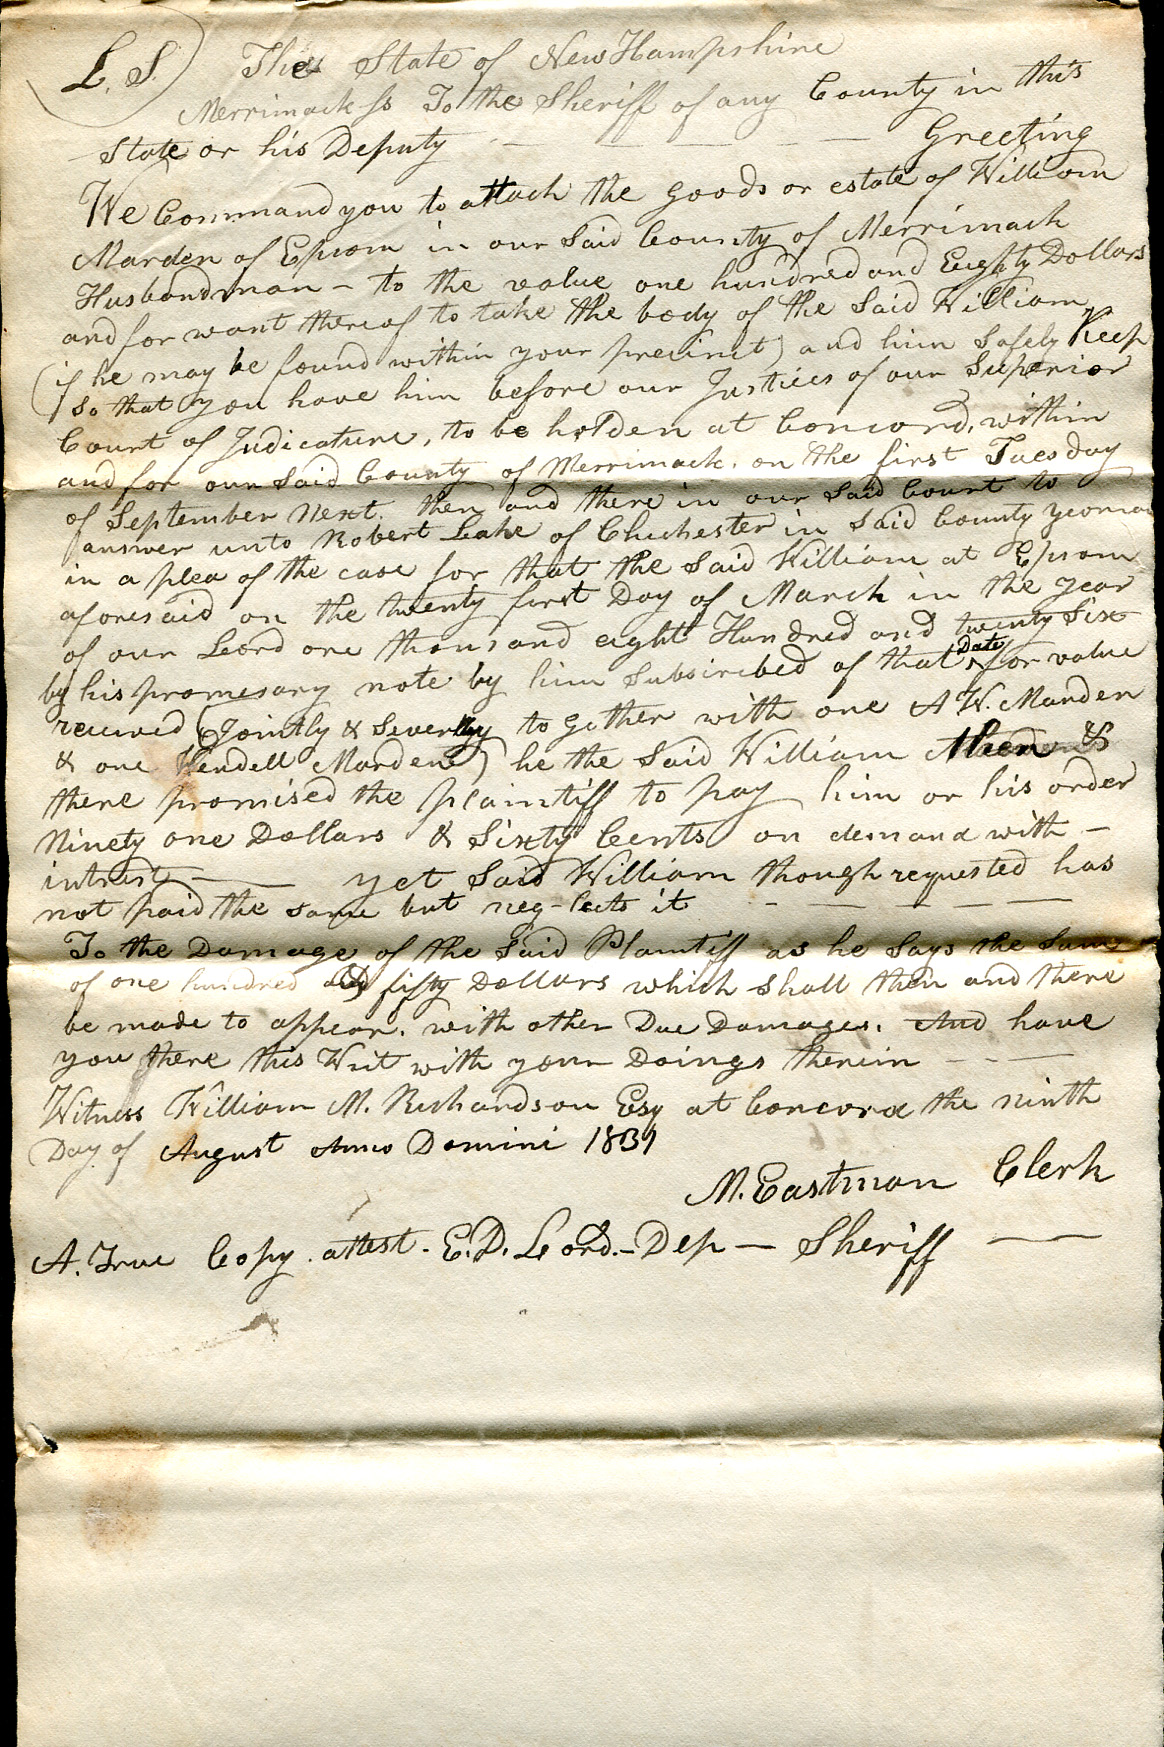 L. S. The State of New Hampshire
Merrimack ss To the Sheriff of any County in this
State or his Deputy — — — Greeting
We Command you to attach the goods or estate of William
Marden of Epsom in our Said County of Merrimack
Husbandman – to the value one hundred and Eighty Dollars
and for want thereof to take the body of the Said William
(if he may be found within your precinct) and him Safely Keep
So that you have him before our Justices of our Superior
Court of Judicature, to be holden at Concord, within
and for our Said County of Merrimack. on the first Tuesday
of September Next. then and there in our Said Court to
answer unto Robert Lake of Chichester in Said County yeoman
in a plea of the case for that the Said William at Epsom
aforesaid on the twenty first Day of March in the year
of our Lord one thousand eight Hundred and twenty Six
by his promesary note by him Subscribed of that Date for value
received (Jointly & Severally to gether with one A W. Marden
& one Wendell Marden) he the Said William then &
there promised the plaintiff to pay him or his order
Ninety one Dollars & Sixty Cents on demand with –
intrest — yet Said William though requested has
not paid the same but neg-lects it - — — — —
To the Damage of the Said Plaintiff as he Says the Sum
of one hundred and fifty Dollars which shall then and there
be made to appear. with other Due Damages. And have
you there this Writ with your Doings therein — - —
Witness William M. Richardson Esq at Concord the ninth
Day of August Anno Domini 1831
M. Eastman Clerk
A. True Copy. attest - E. D. Lord. – Dep — Sheriff —